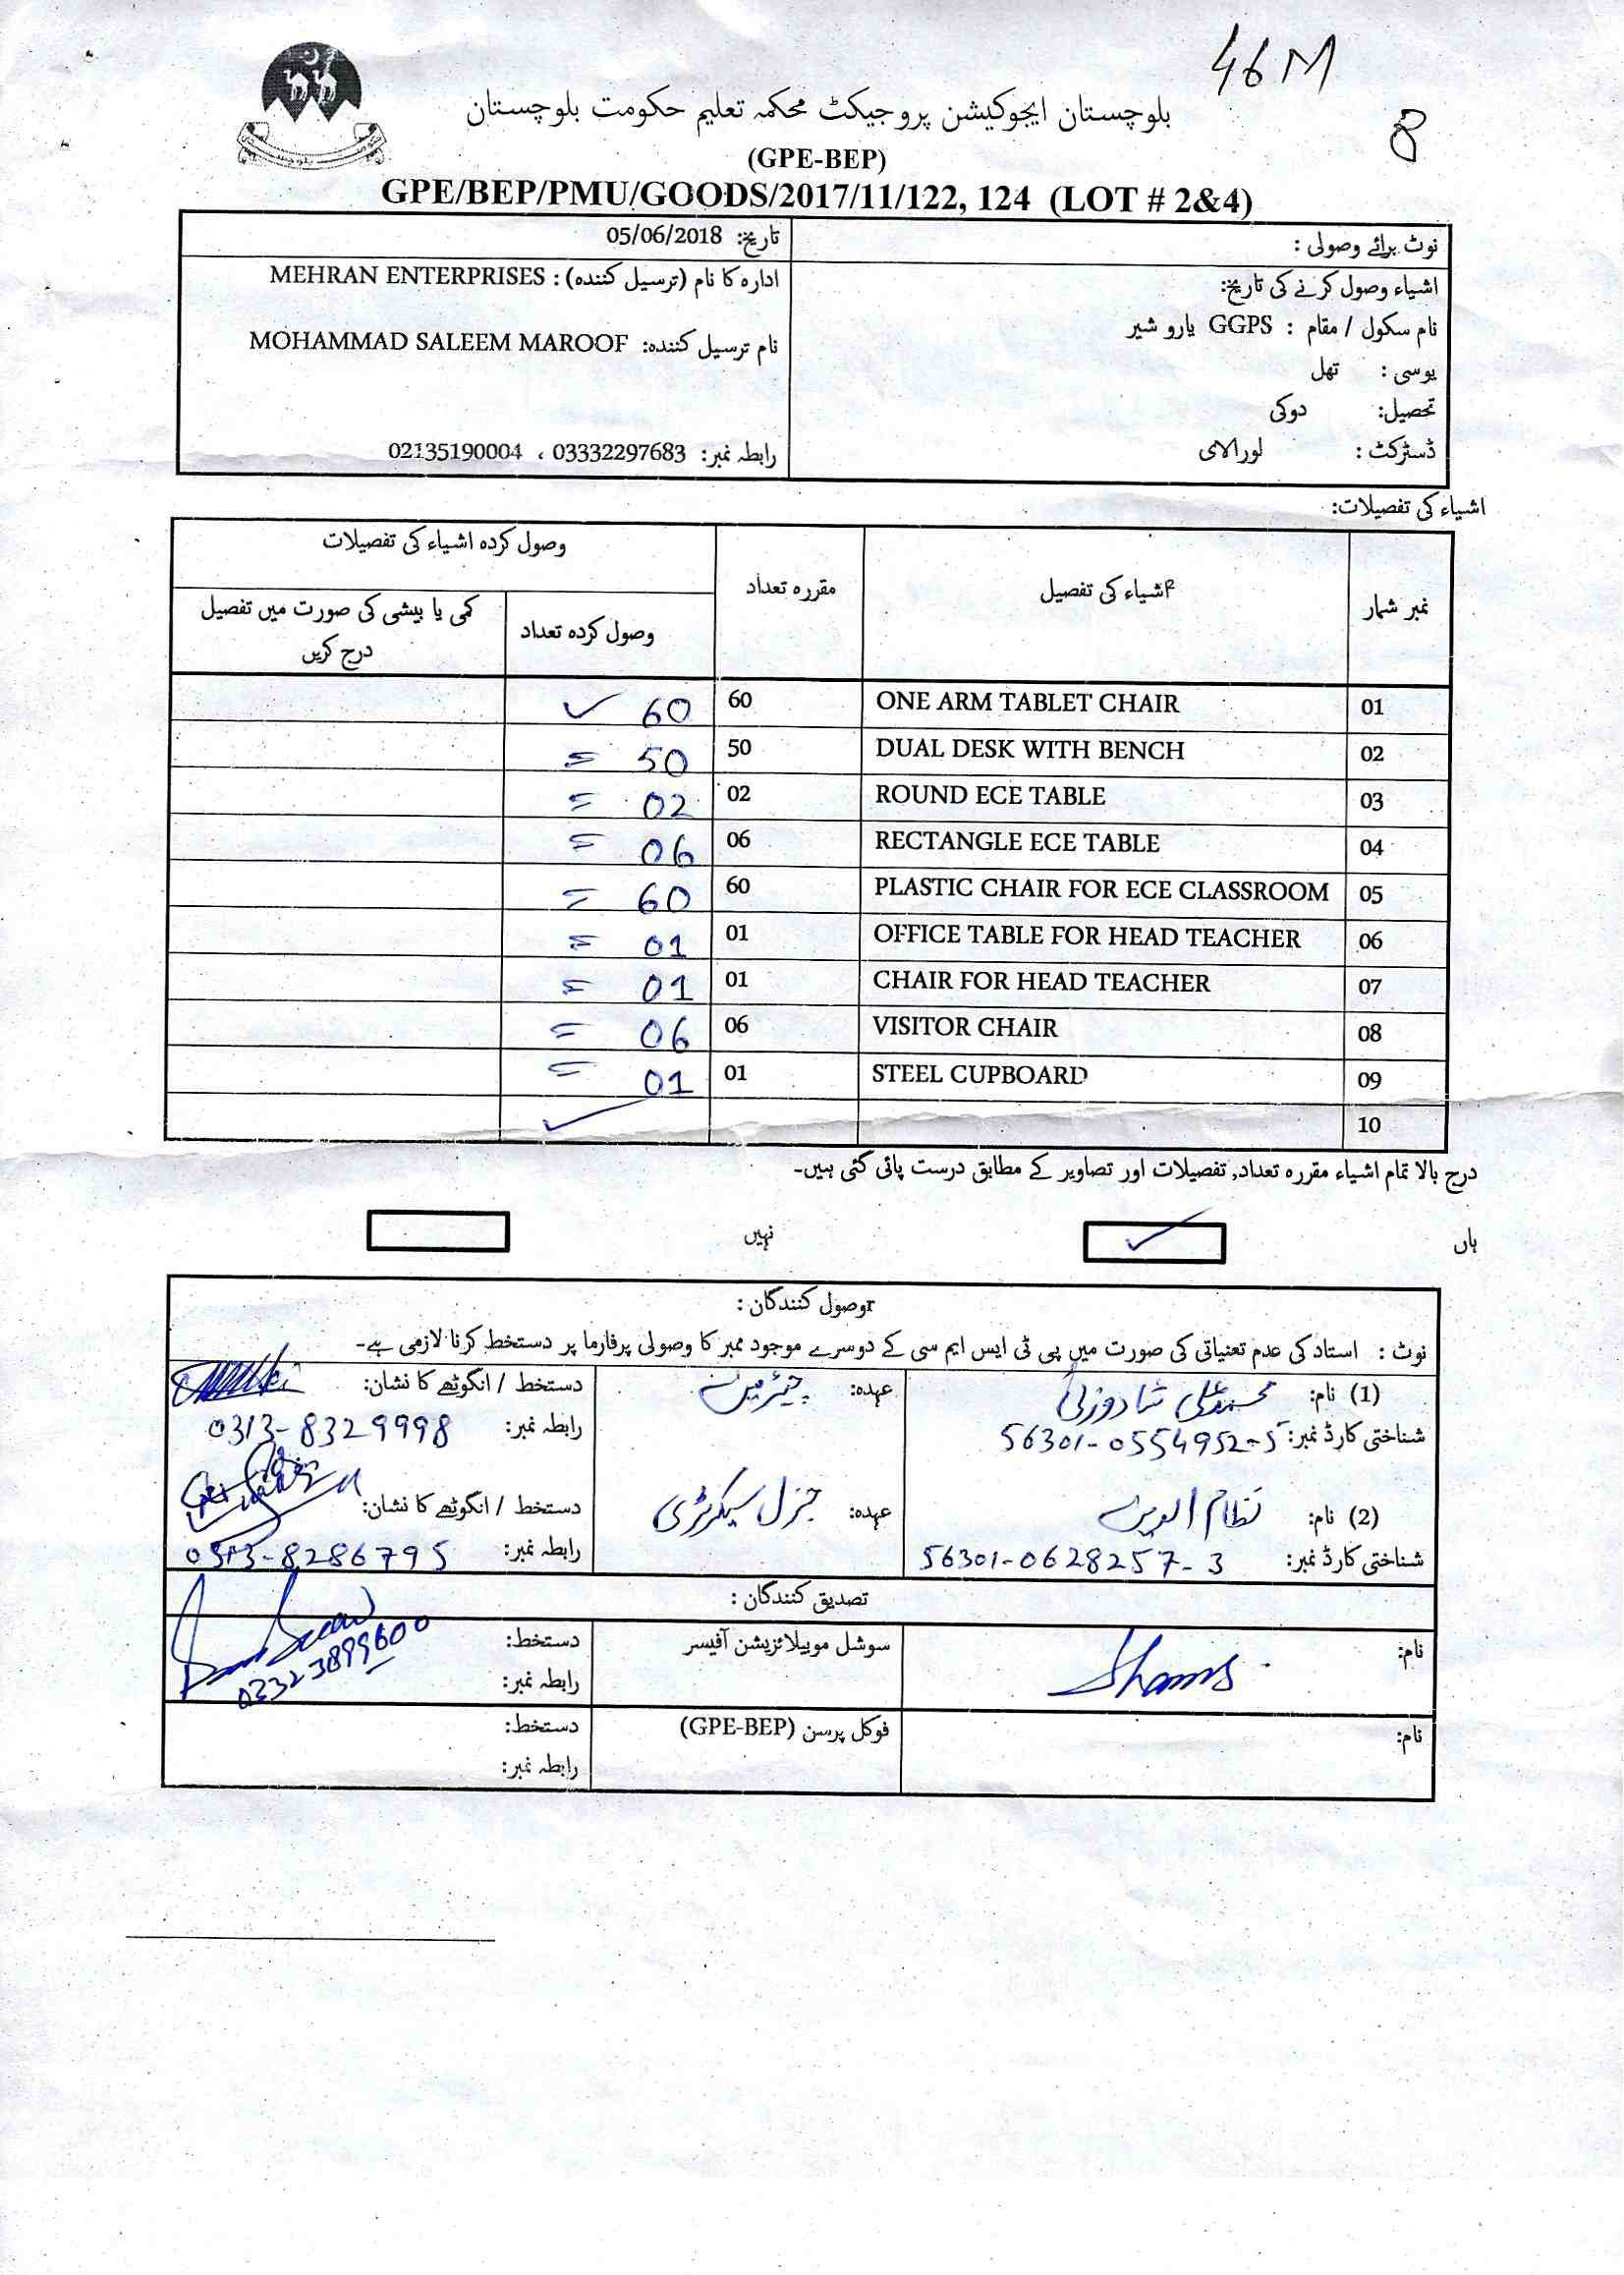 46 M
8
بلوچستان ایجوکیشن پروجیکٹ محکمہ تعلیم حکومت بلوچستان
(GPE-BEP)
GPE/BEP/PMU/GOODS/2017/11/122, 124 (LOT # 2&4)
نوٹ برائے وصولی :
تاریخ: 05/06/2018
اشیاء وصول کرنے کی تاریخ:
ادارہ کا نام (ترسیل کنندہ) : MEHRAN ENTERPRISES
نام سکول / مقام : GGPS یارو شیر
نام ترسیل کنندہ: MOHAMMAD SALEEM MAROOF
یوسی : تھل
تحصیل: دوکی
ڈسٹرکٹ : لورالای
رابطہ نمبر: 03332297683 ، 02135190004
اشیاء کی تفصیلات:
نمبر شمار اشیاء کی تفصیل مقررہ تعداد وصول کردہ اشیاء کی تفصیلات
وصول کردہ تعداد کمی یا بیشی کی صورت میں تفصیل درج کریں
01 ONE ARM TABLET CHAIR 60 60 ✓
02 DUAL DESK WITH BENCH 50 50 =
03 ROUND ECE TABLE 02 02 =
04 RECTANGLE ECE TABLE 06 06 =
05 PLASTIC CHAIR FOR ECE CLASSROOM 60 60 =
06 OFFICE TABLE FOR HEAD TEACHER 01 01 =
07 CHAIR FOR HEAD TEACHER 01 01 =
08 VISITOR CHAIR 06 06 =
09 STEEL CUPBOARD 01 01 =
10 ✓
درج بالا تمام اشیاء مقررہ تعداد, تفصیلات اور تصاویر کے مطابق درست پائی گئی ہیں۔
ہاں ✓ نہیں
وصول کنندگان :
نوٹ : استاد کی عدم تعنیاتی کی صورت میں پی ٹی ایس ایم سی کے دوسرے موجود ممبر کا وصولی پرفارما پر دستخط کرنا لازمی ہے۔
(1) نام: محمد علی شادوزئی عہدہ: چیئرمین دستخط / انگوٹھے کا نشان:
شناختی کارڈ نمبر: 56301-0554952-5 رابطہ نمبر: 0313-8329998
(2) نام: نظام الدین عہدہ: جنرل سیکرٹری دستخط / انگوٹھے کا نشان:
شناختی کارڈ نمبر: 56301-0628257-3 رابطہ نمبر: 0313-8286795
تصدیق کنندگان :
نام: Shams سوشل موبیلائزیشن آفیسر دستخط:
رابطہ نمبر: 03323899600
نام: فوکل پرسن (GPE-BEP) دستخط:
رابطہ نمبر: